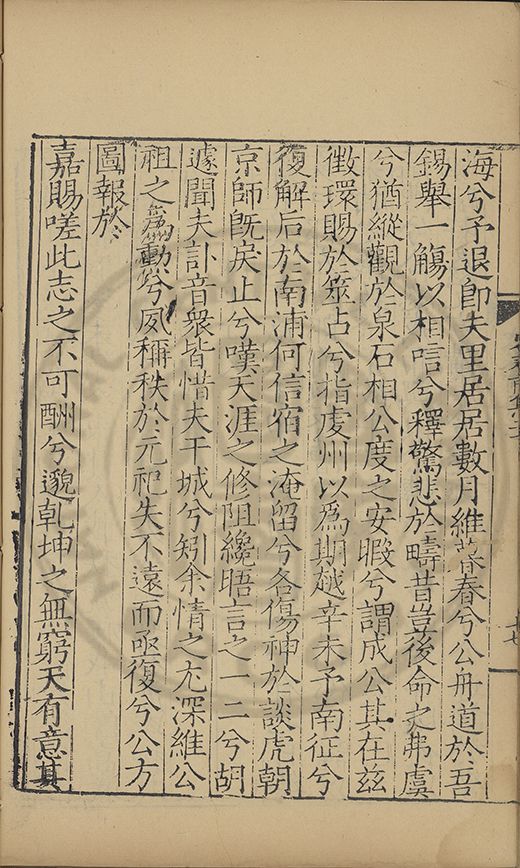 海兮予退卽夫里居居數月維暮春兮公舟道於吾
錫舉一觴以相唁兮釋驚悲於疇昔豈後命之弗虞
兮猶縱觀於泉石相公度之安暇兮謂成公其在茲
徵環賜於筮占兮指虔州以爲期越辛未予南征兮
復解后於南浦何信宿之淹留兮各傷神於談虎朝
京師旣戾止兮嘆天涯之修阻纔晤言之一二兮胡
遽聞夫訃音衆皆惜夫干城兮矧余情之尤深維公
祖之勳兮夙稱秩於元祀失不遠而亟復兮公方
圖報於
嘉賜嗟此志之不可酬兮邈乾坤之無窮天有意其